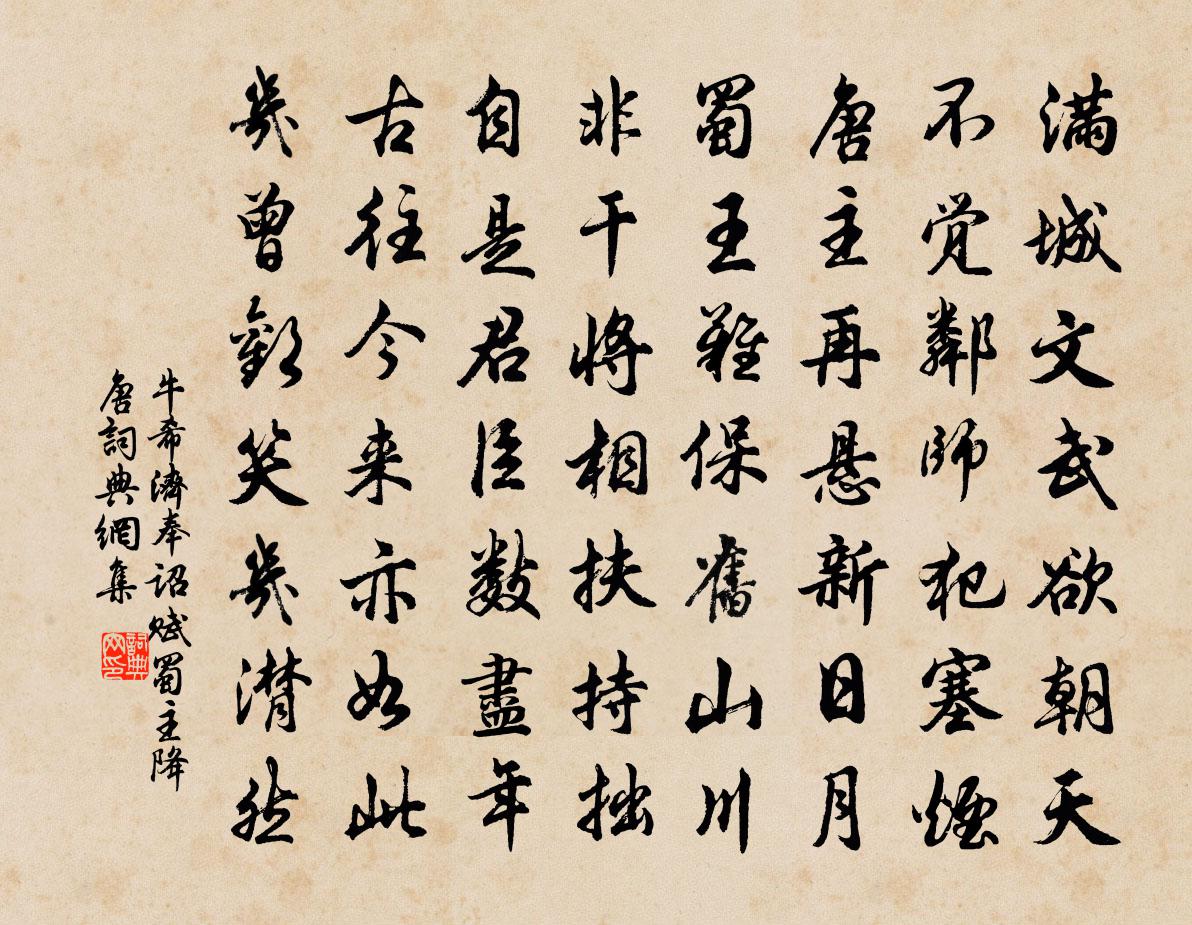 滿城文武欲朝天
不覺鄰師犯塞煙
唐主再懸新日月
蜀王難保舊山川
非干將相扶持拙
自是君臣數盡年
古往今来亦如此
幾曾歡笑幾潸然
牛希濟奉詔賦蜀主降
唐詞典網集
詞典
网印